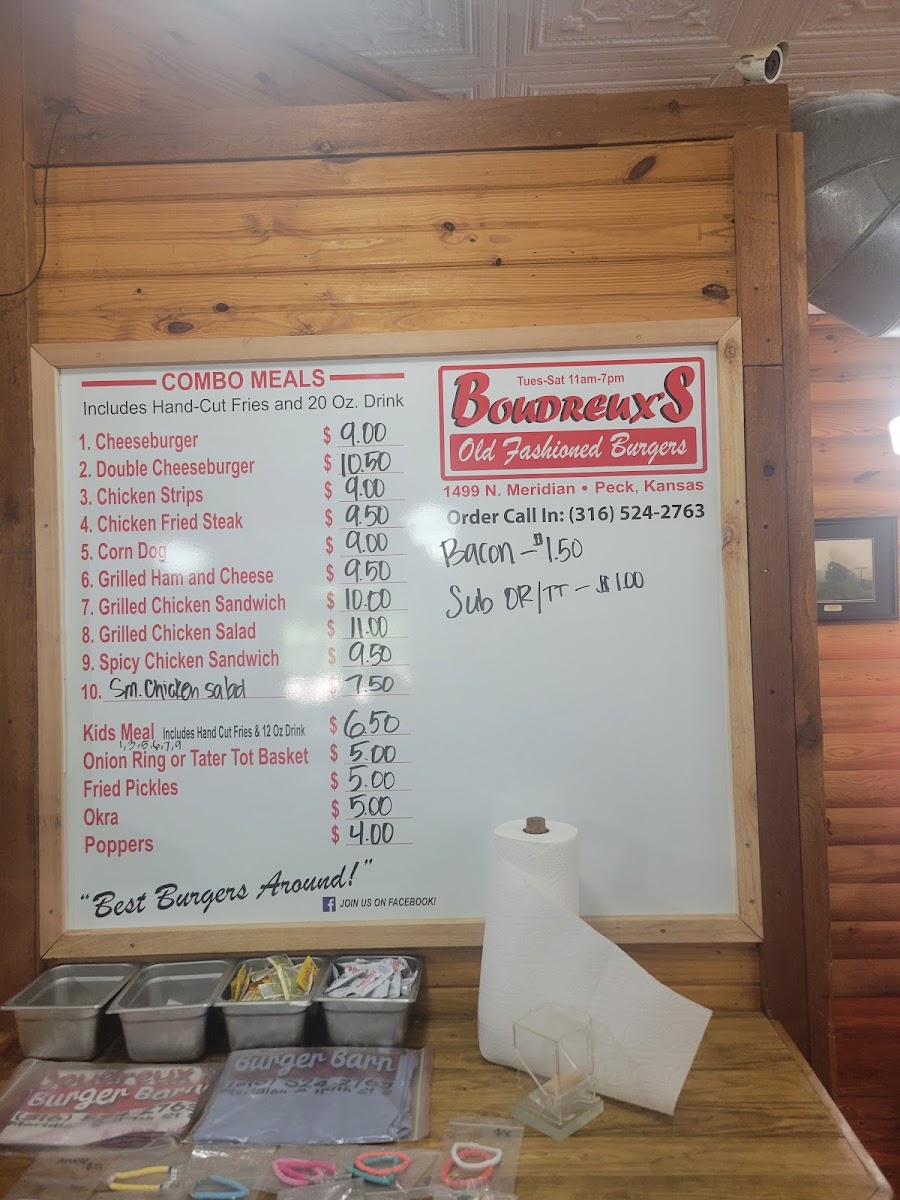 COMBO MEALS
Includes Hand-Cut Fries and 20 Oz. Drink
1. Cheeseburger $ 9.00
2. Double Cheeseburger $ 10.50
3. Chicken Strips $ 9.00
4. Chicken Fried Steak $ 9.50
5. Corn Dog $ 9.00
6. Grilled Ham and Cheese $ 9.50
7. Grilled Chicken Sandwich $ 10.00
8. Grilled Chicken Salad $ 11.00
9. Spicy Chicken Sandwich $ 9.50
10. Sm. Chicken salad $ 7.50
Kids Meal Includes Hand Cut Fries & 12 Oz Drink $ 6.50
1,3,5,6,7,9
Onion Ring or Tater Tot Basket $ 5.00
Fried Pickles $ 5.00
Okra $ 5.00
Poppers $ 4.00
"Best Burgers Around!"
JOIN US ON FACEBOOK!
Tues-Sat 11am-7pm
BOUDREUX'S
Old Fashioned Burgers
1499 N. Meridian • Peck, Kansas
Order Call In: (316) 524-2763
Bacon - $1.50
Sub OR/TT - $1.00
Burger Barn
Burger Barn
(316) 524-2763